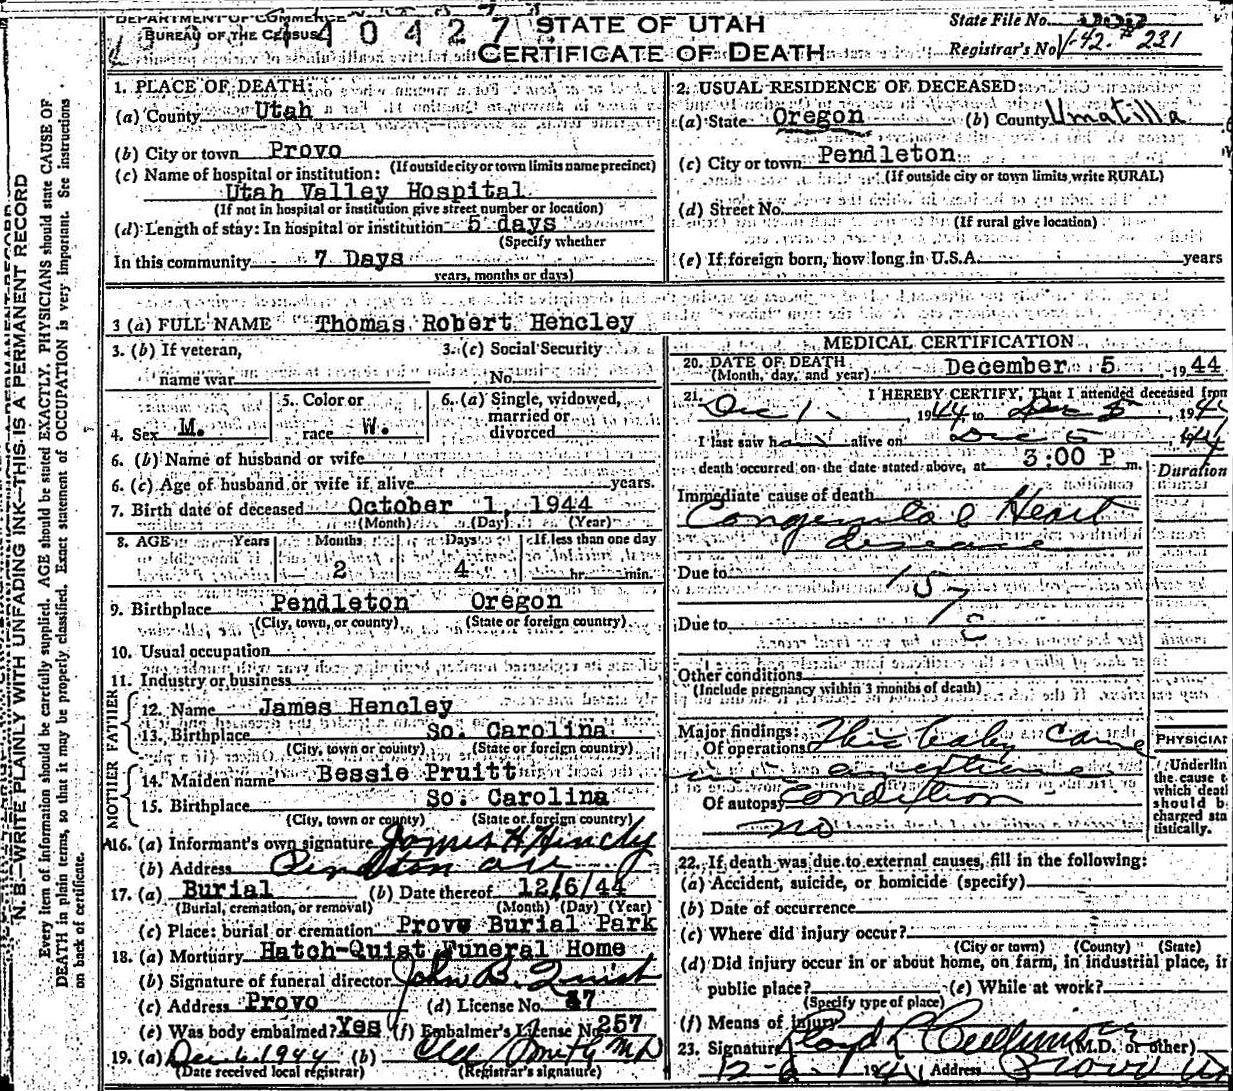 DEPARTMENT OF Commerce
BUREAU OF THE CENSUS
140427
STATE OF UTAH
CERTIFICATE OF DEATH
State File No.
Registrar's No. V-42- # 231
N. B.—WRITE PLAINLY WITH UNFADING INK—THIS IS A PERMANENT RECORD
Every item of information should be carefully supplied. AGE should be stated EXACTLY. PHYSICIANS should state CAUSE OF
DEATH in plain terms, so that it may be properly classified. Exact statement of OCCUPATION is very important. See instructions
on back of certificate.
1. PLACE OF DEATH:
(a) County Utah
(b) City or town Provo
(If outside city or town limits name precinct)
(c) Name of hospital or institution:
Utah Valley Hospital
(If not in hospital or institution give street number or location)
(d) Length of stay: In hospital or institution 5 days
(Specify whether
In this community 7 Days
years, months or days)
2. USUAL RESIDENCE OF DECEASED:
(a) State Oregon (b) County Umatilla
(c) City or town Pendleton
(If outside city or town limits write RURAL)
(d) Street No.
(If rural give location)
(e) If foreign born, how long in U.S.A. years
3 (a) FULL NAME Thomas Robert Hencley
3. (b) If veteran, 3. (c) Social Security
name war No.
4. Sex M. 5. Color or race W. 6. (a) Single, widowed, married or divorced
6. (b) Name of husband or wife
6. (c) Age of husband or wife if alive years.
7. Birth date of deceased October 1, 1944
(Month) (Day) (Year)
8. AGE Years Months Days If less than one day
2 4 hr. min.
9. Birthplace Pendleton Oregon
(City, town, or county) (State or foreign country)
10. Usual occupation
11. Industry or business
FATHER
12. Name James Hencley
13. Birthplace So. Carolina
(City, town or county) (State or foreign country)
MOTHER
14. Maiden name Bessie Pruitt
15. Birthplace So. Carolina
(City, town or county) (State or foreign country)
16. (a) Informant's own signature James H Hencly
(b) Address
17. (a) Burial (b) Date thereof 12/6/44
(Burial, cremation, or removal) (Month) (Day) (Year)
(c) Place: burial or cremation Provo Burial Park
18. (a) Mortuary Hatch-Quist Funeral Home
(b) Signature of funeral director John B. Quist
(c) Address Provo (d) License No. 47
(e) Was body embalmed? Yes (f) Embalmer's License No. 257
19. (a) Dec 6 1944 (b)
(Date received local registrar) (Registrar's signature)
MEDICAL CERTIFICATION
20. DATE OF DEATH December 5 1944
(Month, day, and year)
21. I HEREBY CERTIFY, That I attended deceased from
Dec 1 1944 to Dec 5 194
I last saw h alive on Dec 5
death occurred on the date stated above, at 3:00 P m.
Duration
Immediate cause of death
Congenital Heart
disease
Due to 157
Due to
Other conditions
(Include pregnancy within 3 months of death)
Major findings:
Of operations This baby came
in in an extreme
Of autopsy condition
no
PHYSICIAN
Underlin
the cause t
which deatl
should b
charged sta
tistically.
22. If death was due to external causes, fill in the following:
(a) Accident, suicide, or homicide (specify)
(b) Date of occurrence
(c) Where did injury occur?
(City or town) (County) (State)
(d) Did injury occur in or about home, on farm, in industrial place, in
public place? (e) While at work?
(Specify type of place)
(f) Means of injury
23. Signature Lloyd L Cullimore (M.D. or other)
12-6- 1944 Address Provo Ut